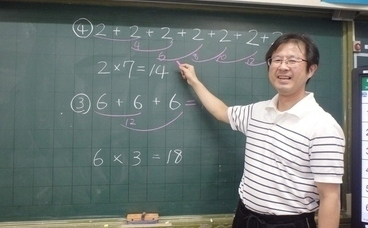 ④ 2 + 2 + 2 + 2 + 2 + 2 + 2
6 8 10 12
2 × 7 = 14
③ 6 + 6 + 6 =
12
6 × 3 = 18